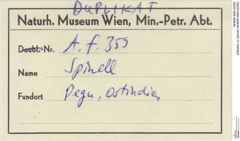 DUPLIKAT
Naturh. Museum Wien, Min.-Petr. Abt.
Doubl.-Nr. A.f. 359
Name Spinell
Fundort Pegu, Ostindien